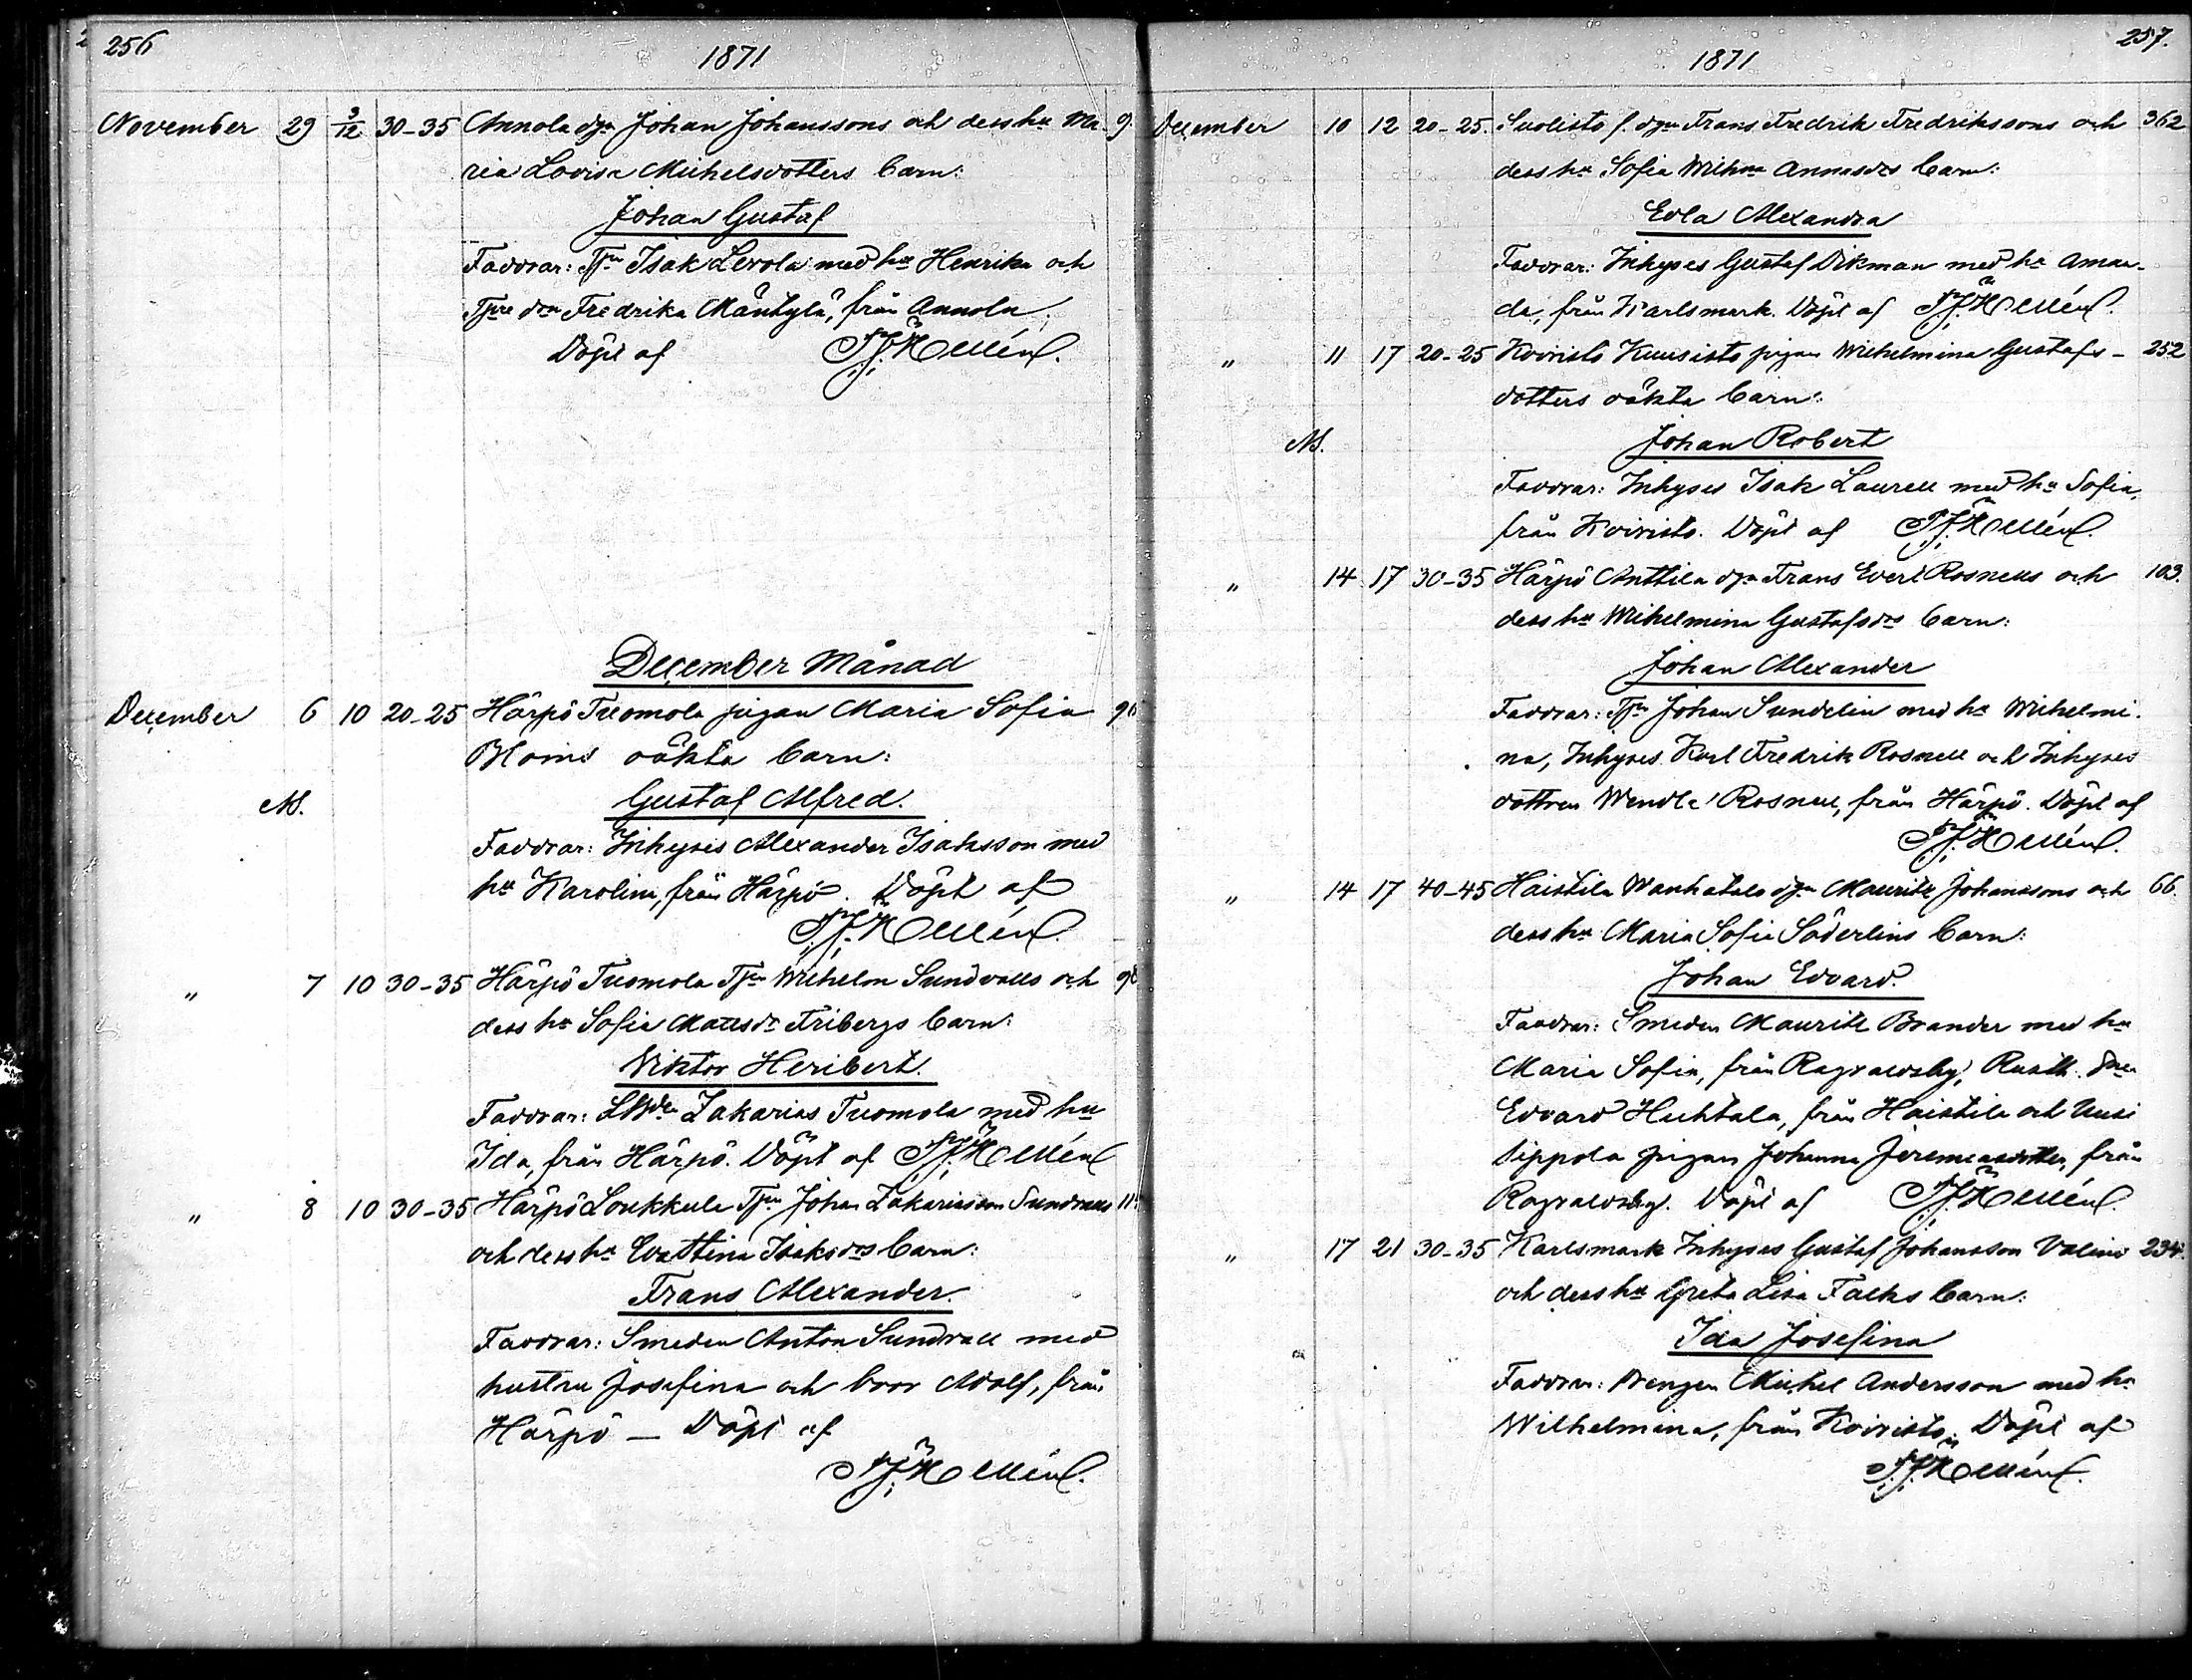 256
1871
November 29 3/12 30-35 Annola dgn Johan Johanssons och dess hu Ma- 9
ria Lovisa Michelsdotters barn:
Johan Gustaf
Faddrar: Tjn Isak Levola med hu Henrika och
Fredrika Mäntylä, från Annola.
Döpt af
December Månad
December 6 10 20-25 Härpö Tuomola pigan Maria Sofia
Bloms oäkta barn:
Gustaf Alfred.
Faddrar: Inhyses Alexander Isaksson med
hu Karolina, från Härpö. Döpt af
" 7 10 30-35 Härpö Tuomola Tjn Wilhelm Sundvalls och
dess hu Sofia Mattsdr Fribergs barn:
Viktor Heribert.
Faddrar: Zakarias Tuomola med hu
Ida, från Härpö. Döpt af
" 8 10 30-35 Härpö Loukkula Tjn Johan Zakariasson Sundvalls
och dess hu Evastina Isaksdrs barn:
Frans Alexander.
Faddrar: Smeden Anton Sundvall med
hustru Josefina och bror Adolf, från
Härpö — Döpt af
257.
1871
December 10 12 20-25. Suolisto dgn Frans Fredrik Fredrikssons och 362
dess hu Sofia Wilhna Annasdrs barn:
Edla Alexandra
Faddrar: Inhyses Gustaf Dikman med hu Aman-
da, från Karlsmark. Döpt af
" 11 17 20-25 Koivisto Kuusisto pigan Wilhelmina Gustafs- 252
dotters oäkta barn:
Johan Robert
Faddrar: Inhyses Isak Laurell med hu Sofia,
från Koivisto. Döpt af
" 14 17 30-35 Härpö Anttila dgn Frans Evert Rosnells och 103.
dess hu Wilhelmina Gustafsdrs barn:
Johan Alexander
Faddrar: Tjn Johan Sundelin med hu Wilhelmi-
na, Inhyses Karl Fredrik Rosnell och Inhyses
dottren Wendla Rosnell, från Härpö. Döpt af
" 14 17 40-45 Haistila Wanhatalo dgn Mauritz Johanssons och 66.
dess hu Maria Sofia Söderlins barn:
Johan Edvard.
Faddrar: Smeden Mauritz Brander med hu
Maria Sofia, från Ragvaldsby, Rusth.
Edvard Huhtala, från Haistila och Uusi
Sippola pigan Johanna Jeremiasdotter, från
Ragvaldsby. Döpt af
" 17 21 30-35 Karlsmark Inhyses Gustaf Johansson Valins 234.
och dess hu Greta Lisa Falks barn:
Ida Josefina
Faddrar: Drengen Michel Andersson med hu
Wilhelmina, från Koivisto. Döpt af